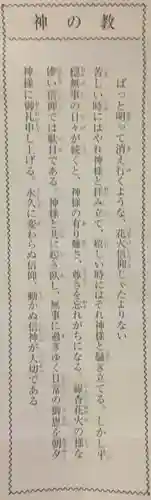 神の教
ぱっと明って消えゆくような、花火信仰じゃたよりない
苦しい時にはやれ神様と拝み立て、嬉しい時にはそれ神様と騒ぎ立てる。しかし平
穏無事の日々が続くと、神様の有り難さ、尊さを忘れがちになる。線香花火の様な
儚い信仰では駄目である。神様と共に起き臥し、無事に過ぎゆく日常の御恩を朝夕
神様に御礼申し上げる。永久に変わらぬ信仰、動かぬ信神が大切である